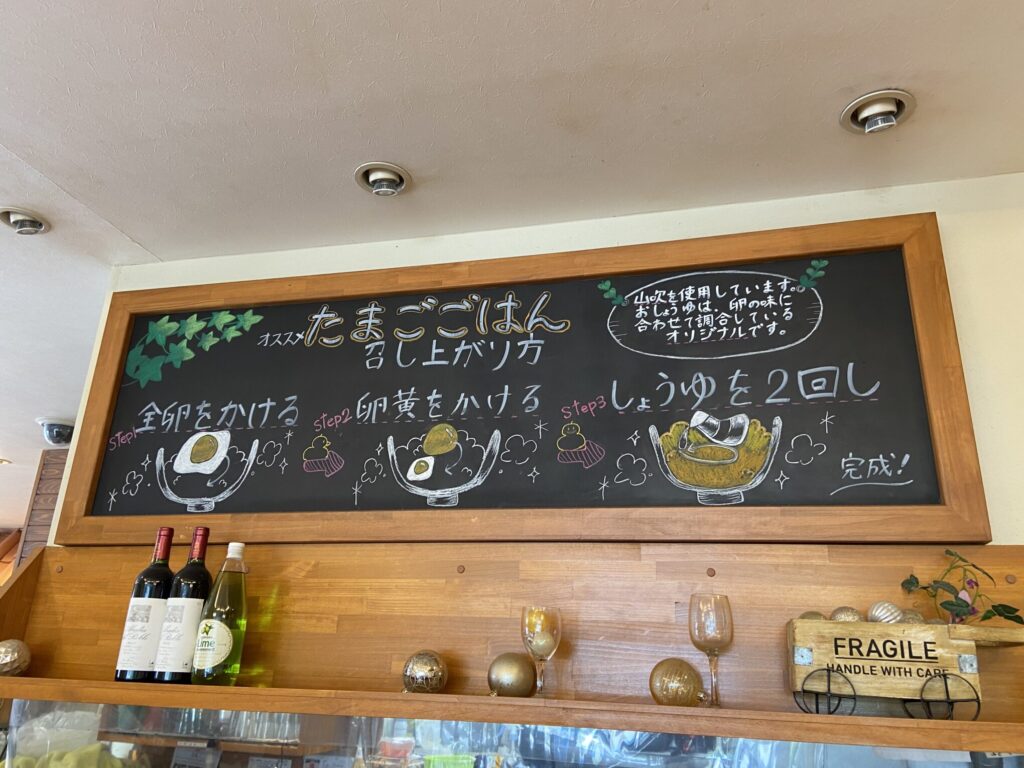 オススメ たまごごはん
召し上がり方
山吹を使用しています。
おしょうゆは、卵の味に
合わせて調合している
オリジナルです。
Step1 全卵をかける
Step2 卵黄をかける
Step3 しょうゆを2回し
完成!
Lime
FRAGILE
HANDLE WITH CARE